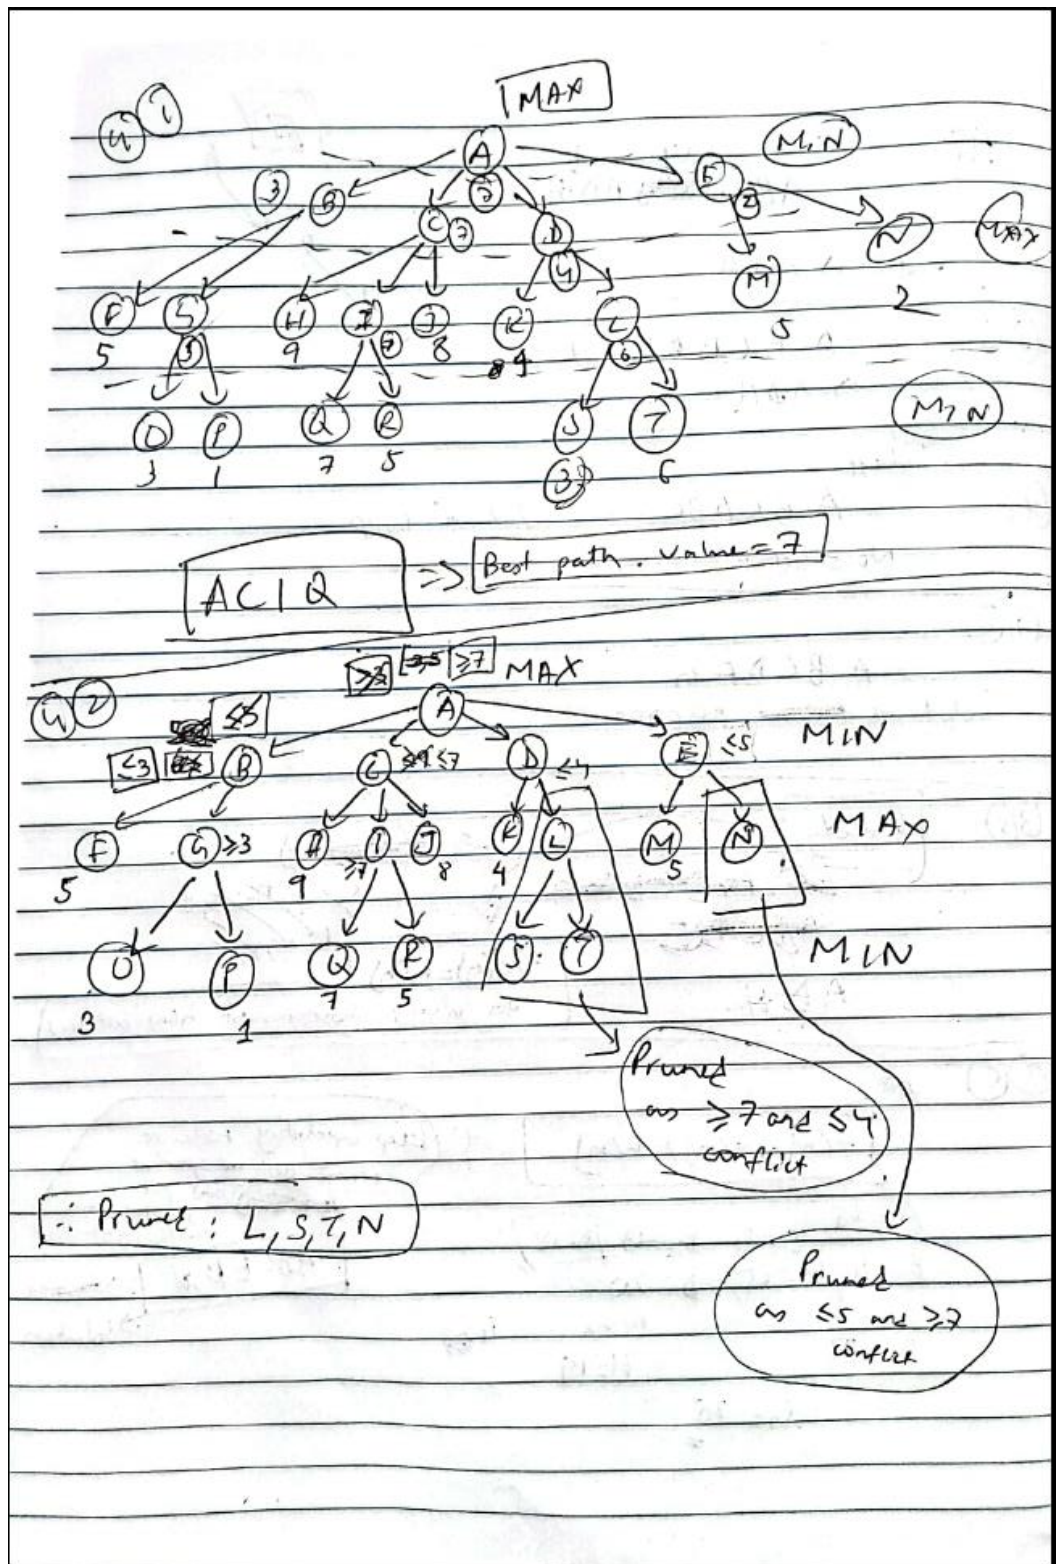 4 1
MAX
A
MIN
3 B
C 7
D
E
2
4
N
MAX
M
2
5
F
G
H
I
J
K
L
5
3
9
7
8
4
6
O
P
Q
R
S
T
MIN
3
1
7
5
3
6
ACIQ => Best path. value = 7
4 2
≥3
≥7 MAX
A
≤5
≤3
B
C ≤7
D ≤4
E ≤5
MIN
F
G ≥3
H
≥7 I
J
K
L
M
N
MAX
5
9
8
4
5
O
P
Q
R
S
T
MIN
3
1
7
5
Pruned
as ≥7 and ≤4
conflict
∴ Pruned: L, S, T, N
Pruned
as ≤5 and ≥7
conflict